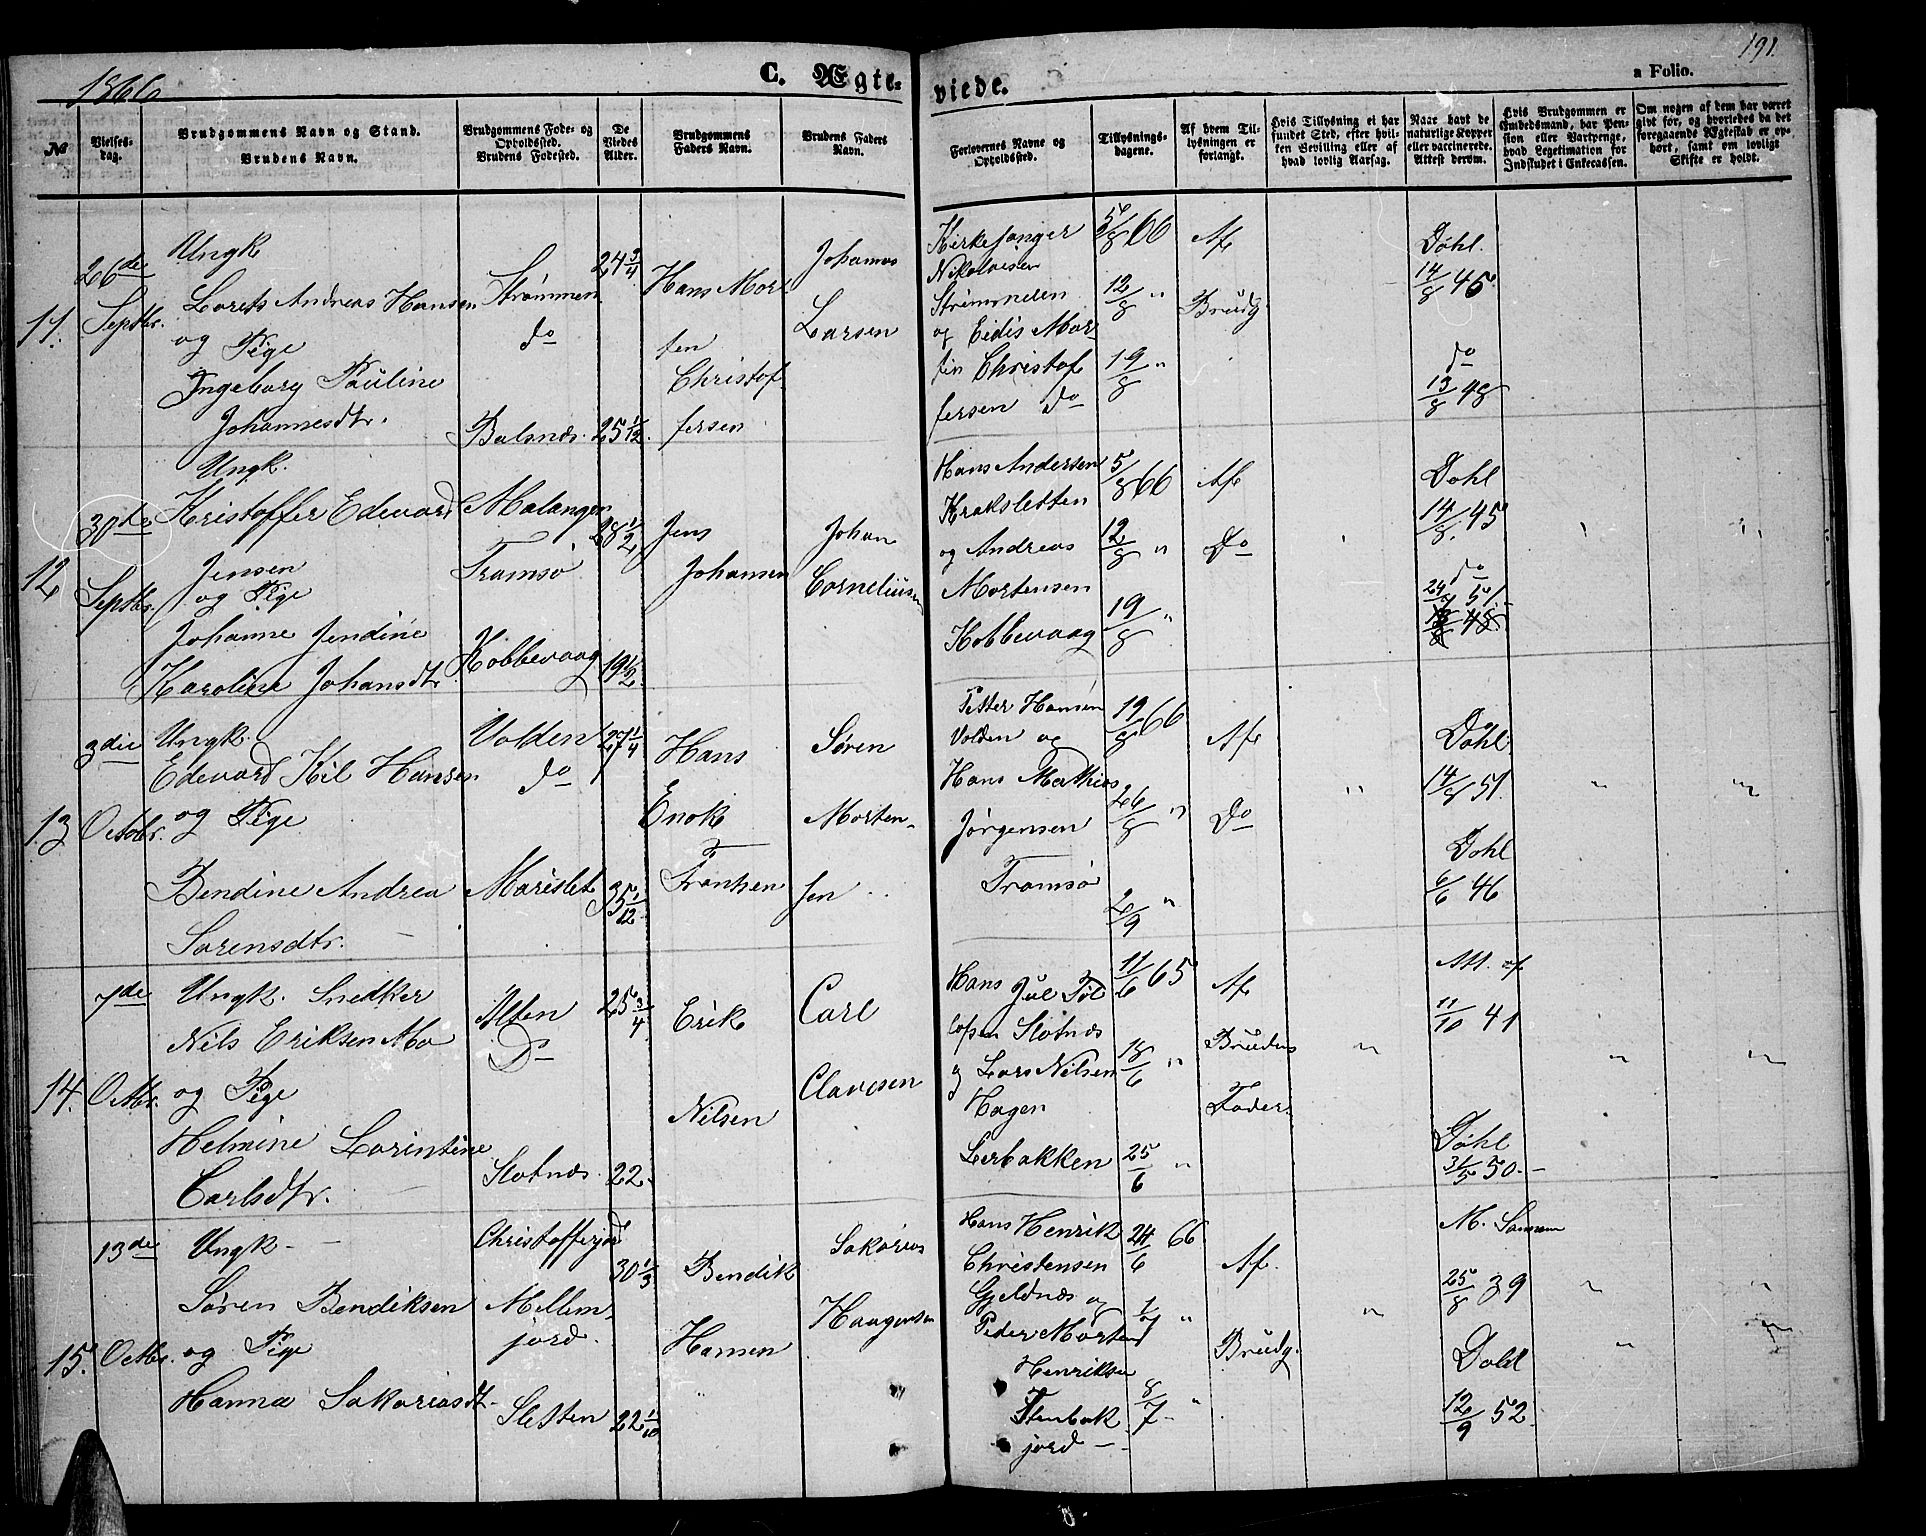 1866
C. Ægte-
viede.
191.
a Folio.
No
Vielses-
dag.
Brudgommens Navn og Stand.
Brudens Navn.
Brudgommens Føde- og
Opholdssted.
Brudens Fødested.
De
Viedes
Alder.
Brudgommens
Faders Navn.
Brudens Faders
Navn.
Forlovernes Navne og
Opholdssted.
Tillysnings-
dagene.
Af hvem Til-
lysningen er
forlangt.
Hvis Tillysning ei har
fundet Sted, efter hvil-
ken Bevilling eller af
hvad lovlig Aarsag.
Naar havt de
naturlige Kopper
eller vaccinerede.
Attest derom.
Hvis Brudgommen er
Embedsmand, har Pen-
sion eller Vartpenge,
hvad Legitimation for
Indskudet i Enkecassen.
Om nogen af dem har været
gift før, og hvorledes da det
foregaaende Ægteskab er op-
hørt, samt om lovligt
Skifte er holdt.
11.
26de
Septbr.
Ungk
Lorets Andreas Hansen
og Pige
Ingeborg Pauline
Johannesdtr.
Strømmen
do
Balsnæs
24 3/4
25 1/12.
Hans Mor
ten
Christof
fersen
Johannes
Larsen
Kirkesanger
Nikolaisen
Strømmen
og Eidis Mor-
tin Christof
fersen do
5/8 66
12/8 "
19/8 "
Af
Brudg
Dohl.
14/8 45
do
13/8 48
12
30te
Septbr.
Ungk.
Kristoffer Edevard
Jensen
og Pige
Johanne Jendine
Karoline Johansdtr
Malangen
Tromsø
Kobbevaag
28 1/2
19 1/2
Jens
Johansen
Johan
Corneliusen
Hans Andersen
Kraksletten
og Andreas
Mortensen
Kobbevaag
5/8 66
12/8 "
19/8 "
Af
Do
Dohl
14/8. 45
do
24/7 51.
13.
3die
Octbr.
Ungk.
Edevard Kil Hansen
og Pige
Bendine Andrea
Sørensdtr.
Volden
do
Marislet
27 1/4
35 1/12
Hans
Enok
Frantsen
Søren
Morten-
sen
Petter Hansen
Volden og
Hans Mathias
Jørgensen
Tromsø
19/8 66
26/8 "
2/9 "
Af
Do
Dohl
14/8 51.
Dohl
6/6 46
14.
7de
Octbr.
Ungk. Snedker
Nils Eriksen Mo
og Pige
Helmine Lorintine
Carlsdtr.
Alten
Do
Slotnæs
25 3/4
22
Erik
Nilsen
Carl
Clausen
Hans Jul Tol
lefsen Slotnæs
og Lars Nilsen
Hagen
Lerbakken
11/6 65
18/6 "
25/6 "
Af
Brudens
Fader
Att. af
11/10 41
Dohl
31/5 50.
15.
13de
Octbr.
Ungk.
Søren Bendiksen
og Pige
Hanna Sakariasdt
Christofferjord
Mellem
jord.
Sletten
30 1/3
22 1/10
Bendik
Hansen
Sakarias
Haagensen
Hans Henrik
Christensen
Gjeldnæs og
Peder Morten
Henriksen
Stenbok
jord
24/6 66
1/7 "
8/7 "
Af.
Brudg.
25/8 39
Dohl
12/9 52